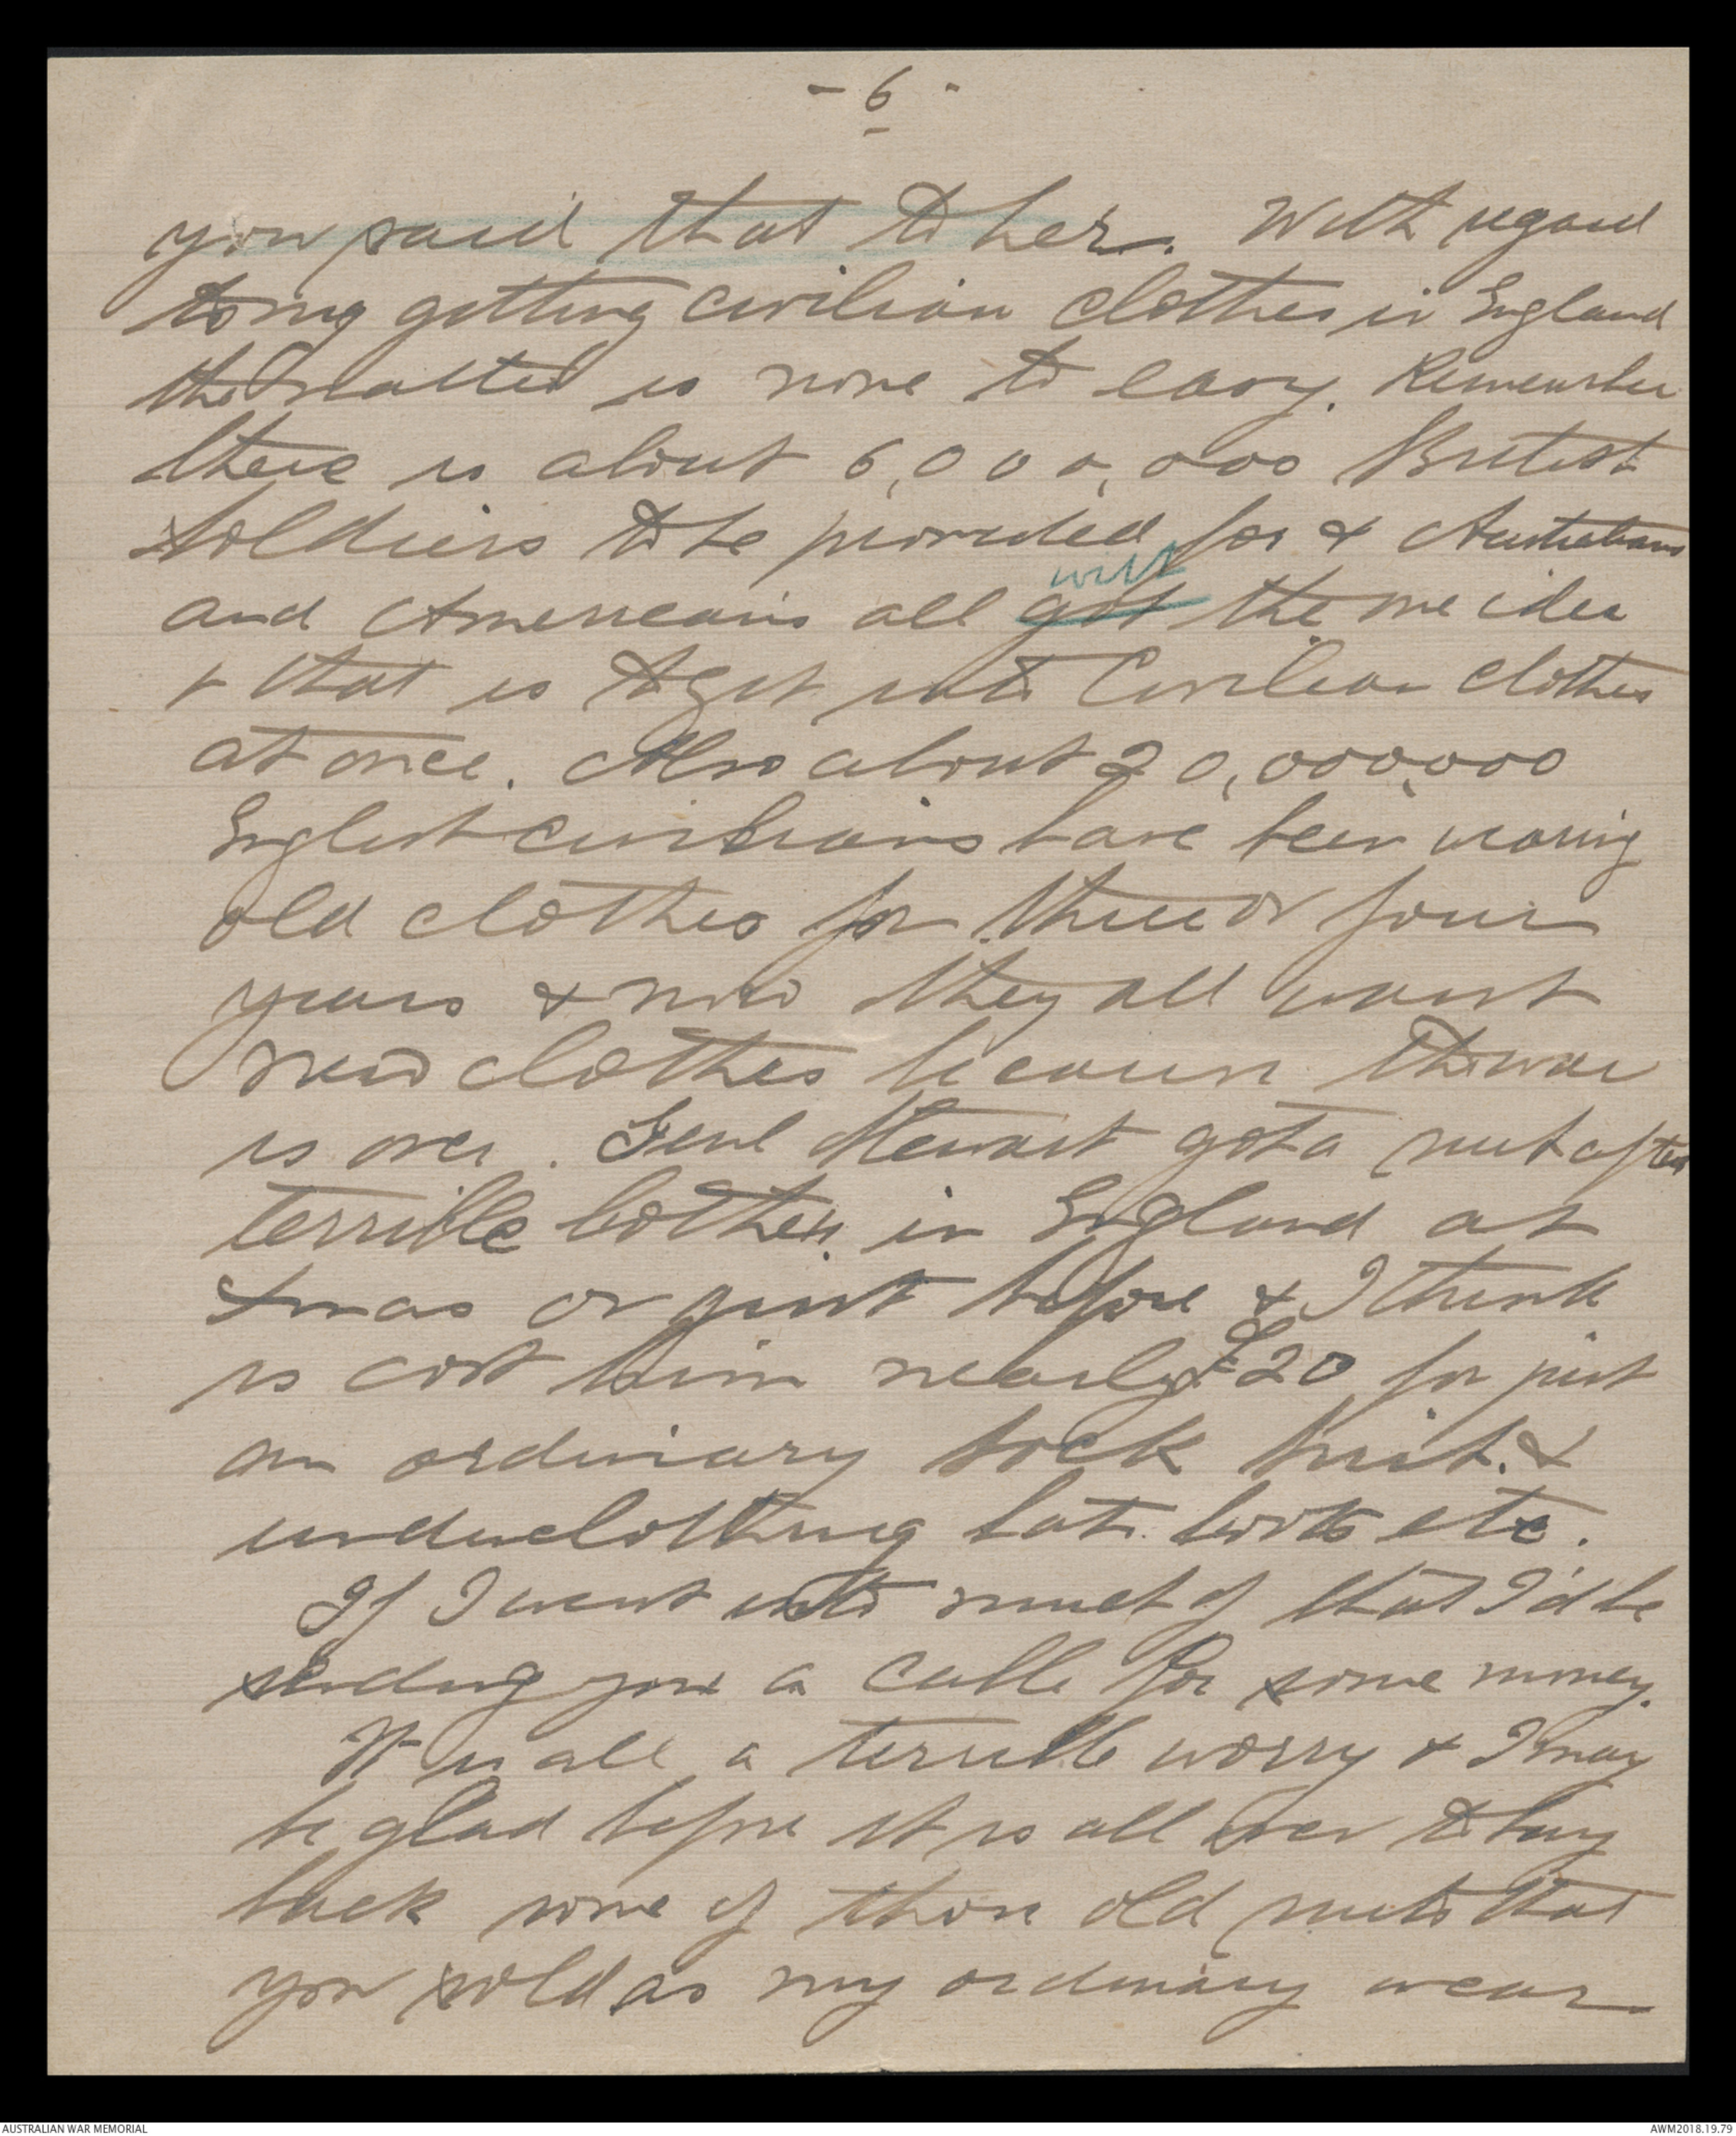 - 6 -
you said that to her. With regard
to my getting civilian clothes in England
the matter is none to easy. Remember
there is about 6,000,000 British
soldiers to be provided for & Australians
will
and Americans all got the one idea
& that is to get into Civilian clothes
at once. Also about 20,000,000
English civilians have been wearing
old clothes for three or four
years & now they all want
new clothes because the war
is over. Genl Stewart got a suit after
terrible bother in England at
Xmas or just before & I think
is cost him nearly £20 for just
an ordinary sock suit. &
underclothing hat boots etc.
If I went into much of that I'd be
sending you a cable for some money.
It is all a terrible worry & I may
be glad before it is all over to buy
back some of those old suits that
you sold as my ordinary wear
AUSTRALIAN WAR MEMORIAL
AWM2018.19.79